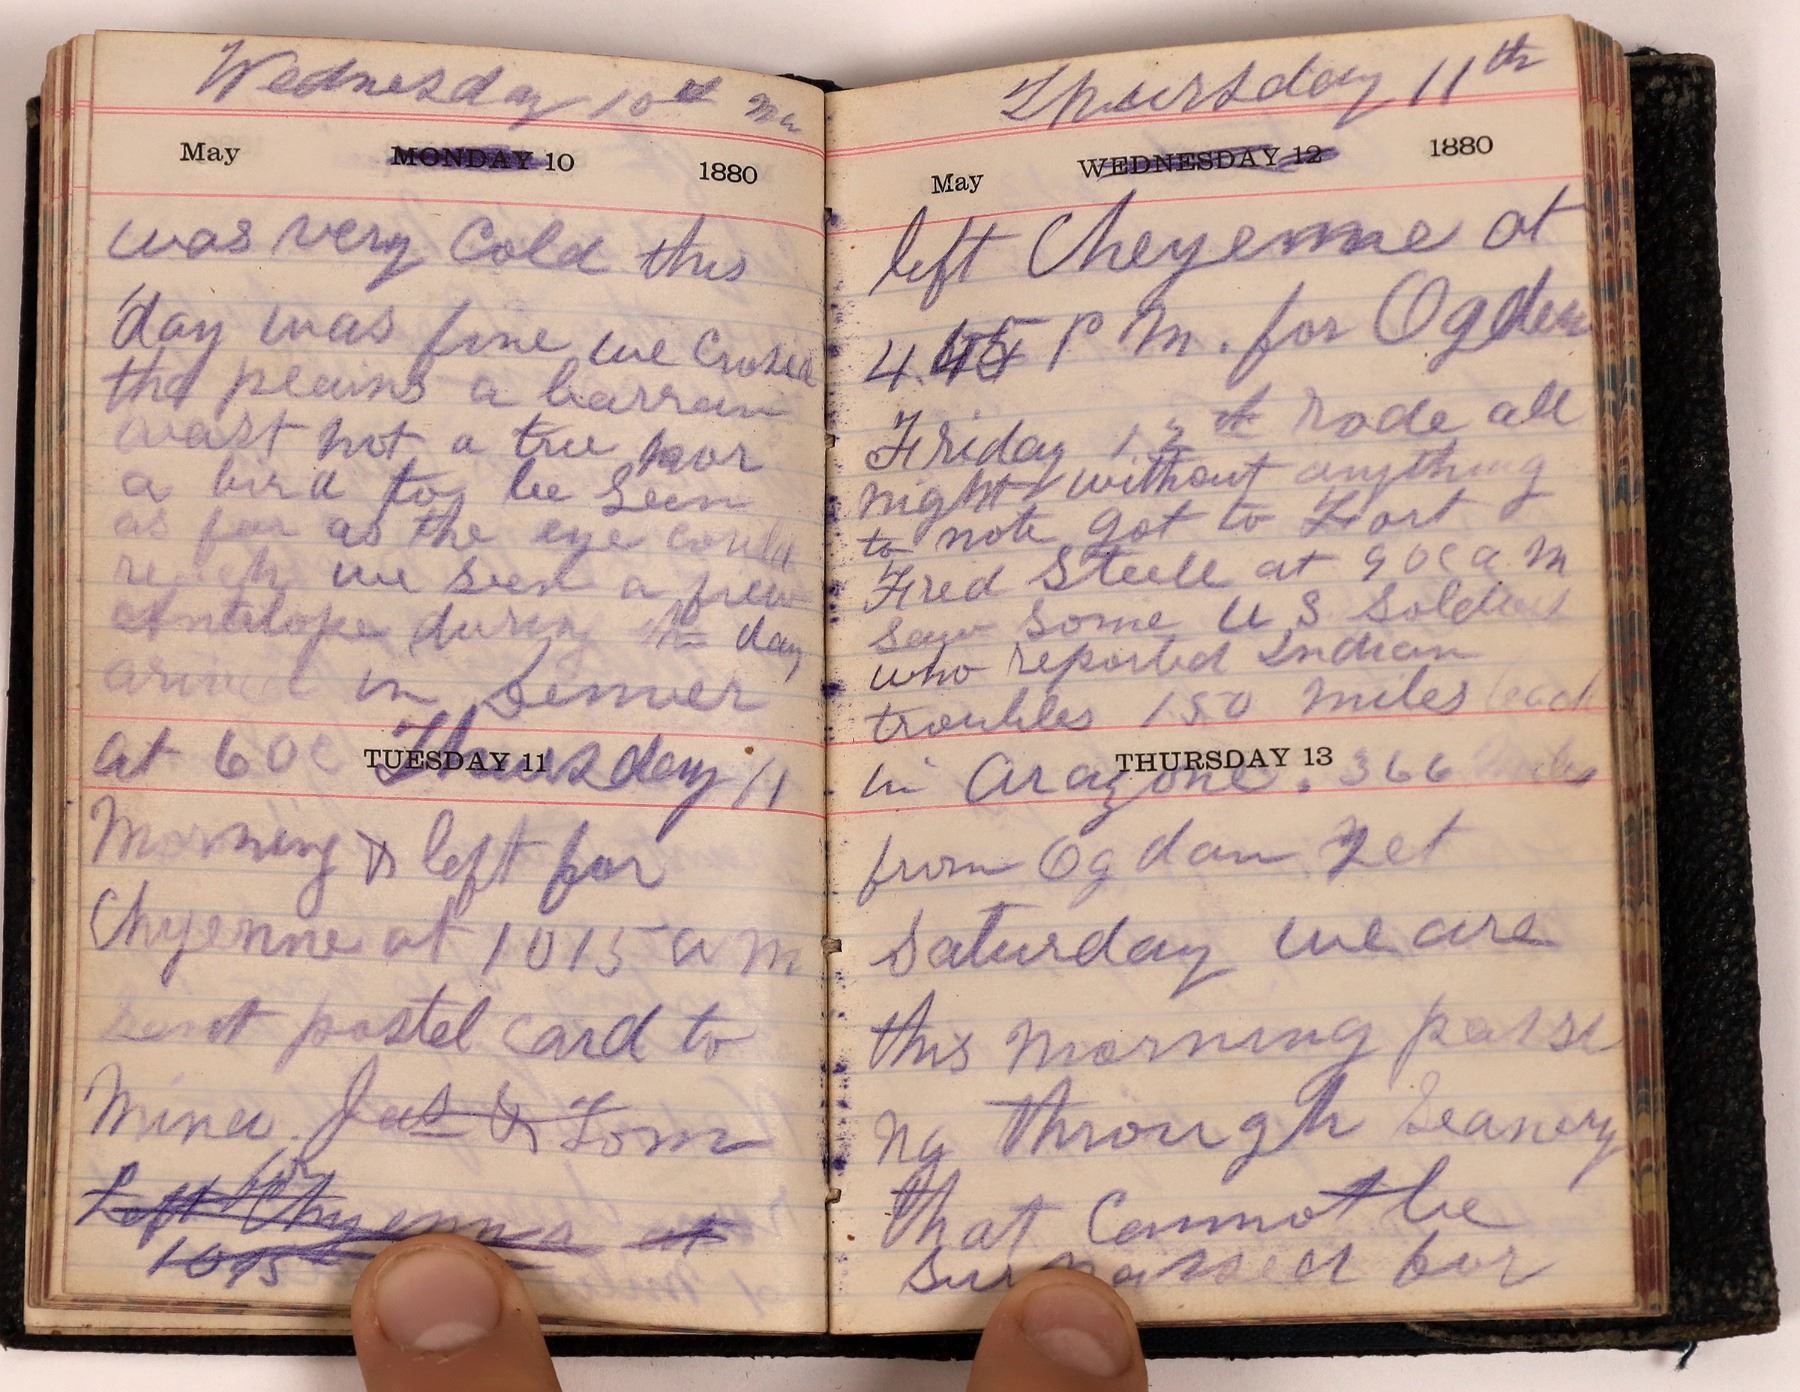 Wednesday 10th Ma
May MONDAY 10 1880
was very cold this
day was fine we crosed
the plains a barran
wast not a tree nor
a bird to be seen
as far as the eye could
reach we seen a few
antalope during the day
arived in Denver
at 6 OC Thursday 11
TUESDAY 11
Morning & left for
Chyenne at 1015 a m
Sent postel card to
Mina. Jas & Tom
Left Chyenne at
1015
Thursday 11th
May WEDNESDAY 12 1880
left Cheyenne at
4.45 P M. for Ogden
Friday 12th rode all
night without anything
to note got to Fort
Fred Steele at 9 oc a m
saw some U S Soldiers
who reported Indian
troubles 150 miles
in Arazone. 366 miles
THURSDAY 13
from Ogdan yet
Saturday we are
this morning passi
ng through seanery
that cannot be
surpassed for